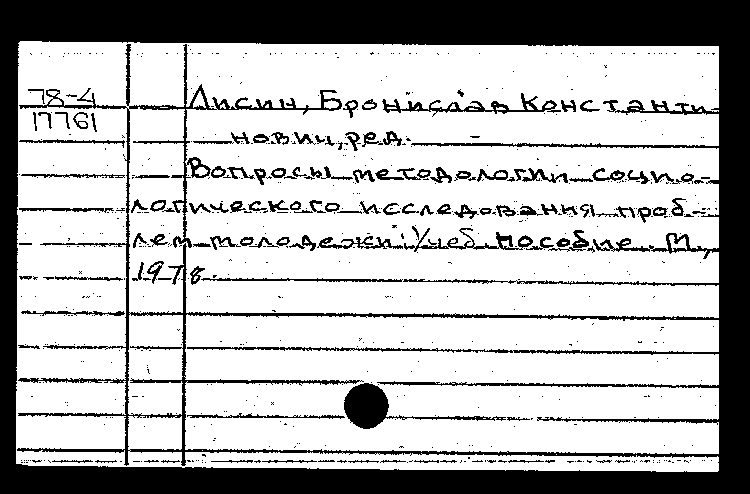 78-4
17761
Лисин, Бронислав Константи-
нович, ред.
Вопросы методологии социо-
логического исследования проб-
лем молодежи: Учеб. пособие. М.,
1978.